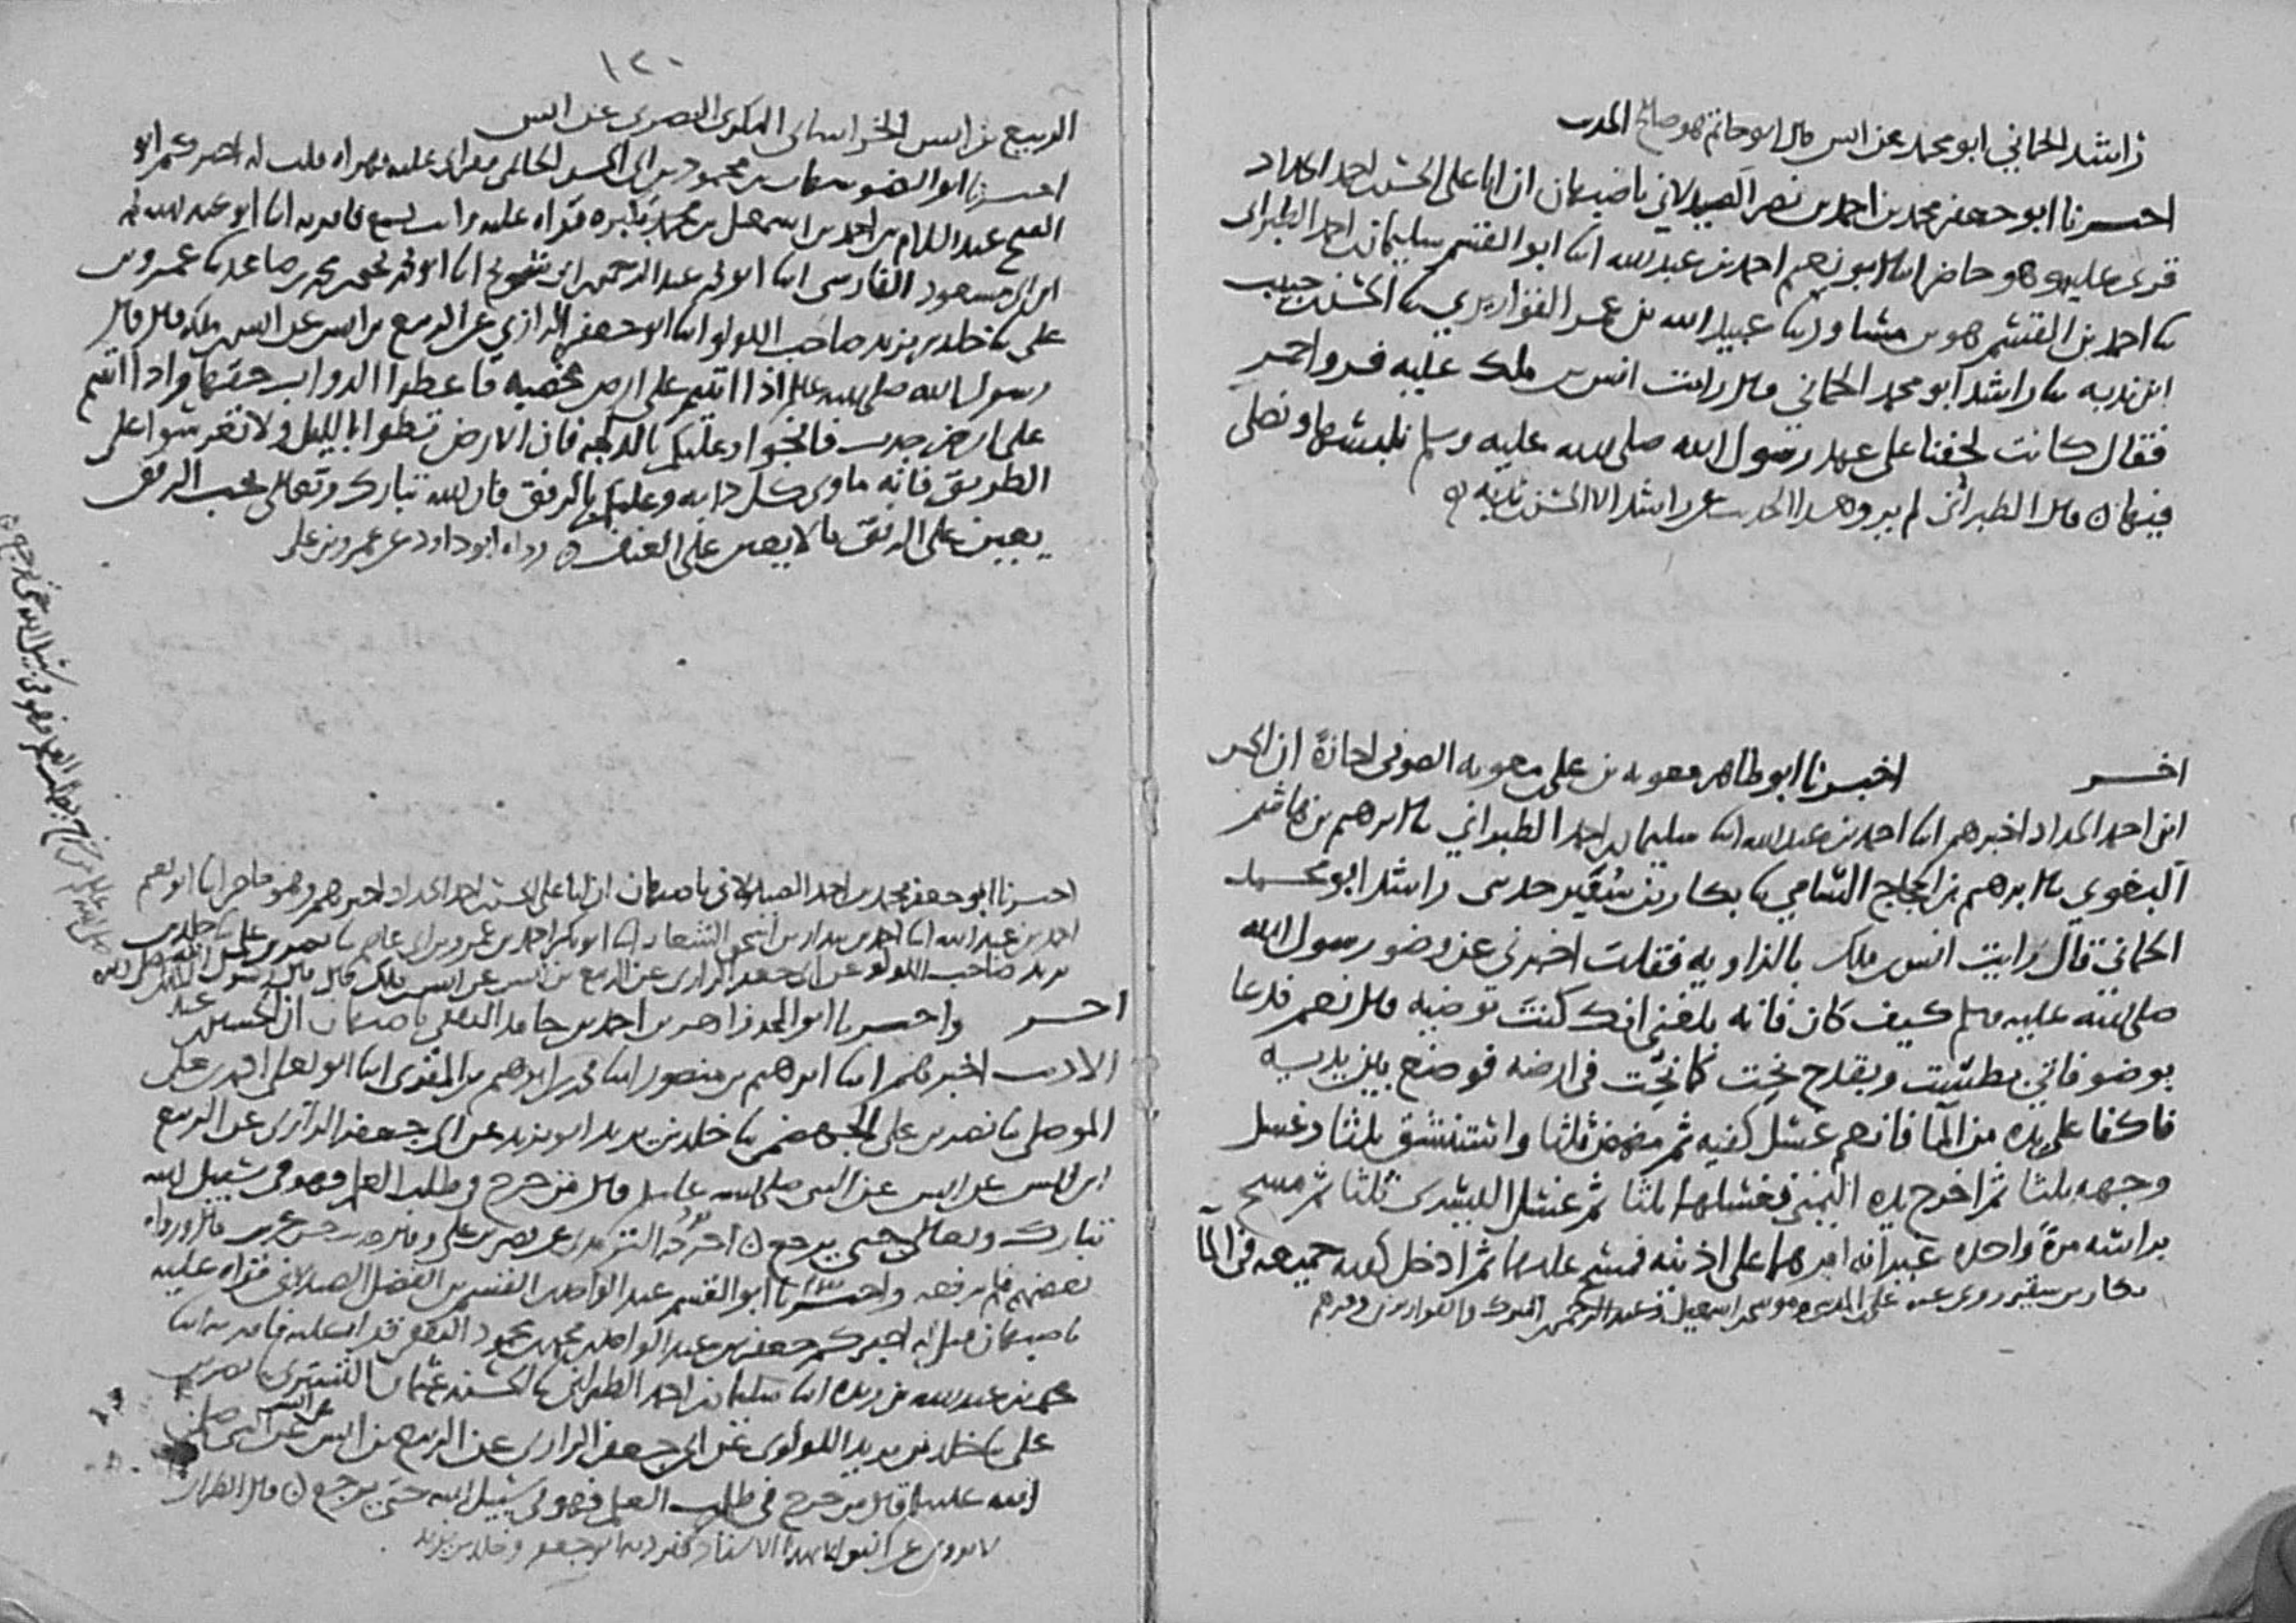 راشد الحماني ابو محمد عن انس قال ابو حاتم هو صالح الحديث
اخبرنا ابو جعفر محمد بن احمد بن نصر الصيدلاني باصبهان ان ابا علي الحسن بن احمد الحداد
قرى عليه وهو حاضر انا ابو نعيم احمد بن عبد الله انا ابو القسم سليمن بن احمد الطبراني
نا احمد بن القسم هو بن مساور نا عبيد الله بن عمر القواريري نا الحسن بن حبيب
ابن ندبه نا راشد ابو محمد الحماني قال رايت انس بن ملك عليه فرو احمر
فقال كانت لحفنا على عهد رسول الله صلى الله عليه وسلم نلبسها ونصلي
فيها ه قال الطبراني لم يرو هذا الحديث عن راشد الا الحسن بن ندبه ه
اخر اخبرنا ابو طاهر معويه بن علي بن معويه الصوفي اجازة ان الحسن
ابن احمد الحداد اخبرهم انا احمد بن عبد الله انا سليمان بن احمد الطبراني نا ابرهيم بن هاشم
البغوي نا ابرهيم بن الحجاج السامي نا بكار بن سقير حدثني راشد ابو محمد
الحماني قال رايت انس بن ملك بالزاويه فقلت اخبرني عن وضو رسول الله
صلى الله عليه وسلم كيف كان فانه بلغني انك كنت توضيه قال نعم فدعا
بوضو فاتي بطست وبقدح نحت كما نحت في ارضه فوضع بين يديه
فاكفا على يده من الما فانعم غسل كفيه ثم مضمض ثلثا واستنشق ثلثا وغسل
وجهه ثلثا ثم اخرج يده اليمنى فغسلها ثلثا ثم غسل اليسرى ثلثا ثم مسح
براسه مرة واحده غير انه امرهما على اذنيه فمسح عليهما ثم ادخل كفيه جميعه في الما
بكار بن سقير روى عنه علي بن المديني وموسى بن اسمعيل وعبد الرحمن بن المبرك والقواريري وغيرهم
١٢٠
الربيع بن انس الخراساني البكري البصري عن انس
اخبرنا ابو الضو بن محمود بن ابي الحسن بقراتي عليه بهراه قلت له اخبركم ابو
الفتح عبد السلام بن احمد بن اسمعيل بن محمد قراه عليه وانت تسمع فاقر به انا ابو عبد الله محمد
ابن ابي مسعود الفارسي انا ابو محمد عبد الرحمن بن ابي شريح انا ابو محمد يحيى بن محمد بن صاعد نا عمرو بن
علي نا خلد بن يزيد صاحب اللولو انا ابو جعفر الرازي عن الربيع بن انس عن انس بن ملك قال قال
رسول الله صلى الله عليه وسلم اذا اتيتم على ارض مخصبه فاعطوا الدواب حقها واذا اتيتم
على ارض جدب فانجوا وعليكم بالدلجه فان الارض تطوا بالليل ولا تعرسوا على
الطريق فانه ماوى كل دابه وعليكم بالرفق فان الله تبارك وتعالى يحب الرفق
يعين على الرفق ما لا يعين على العنف ه رواه ابو داود عن عمرو بن علي
اخبرنا ابو جعفر محمد بن احمد الصيدلاني باصبهان ان ابا علي الحسن بن احمد الحداد اخبرهم وهو حاضر انا ابو نعيم
احمد بن عبد الله انا احمد بن بندار بن اسحق الشعار انا ابو بكر احمد بن عمرو بن ابي عاصم نا نصر بن علي نا خلد بن
يزيد صاحب اللولو عن ابي جعفر الرازي عن الربيع بن انس عن انس بن ملك قال قال رسول الله صلى الله
اخر واخبرنا ابو المجد زاهر بن احمد بن حامد الثقفي باصبهان ان الحسين بن عبد
الاديب اخبرهم انا ابرهيم بن منصور انا محمد بن ابرهيم بن المقرى انا ابو يعلى احمد بن علي
الموصلي نا نصر بن علي الجهضمي نا خلد بن يزيد ابو يزيد عن ابي جعفر الرازي عن الربيع
ابن انس عن انس عن النبي صلى الله عليه وسلم قال من خرج في طلب العلم فهو في سبيل الله
تبارك وتعالى حتى يرجع ه اخرجه الترمذي عن نصر بن علي وقال حديث حسن غريب قال ورواه
بعضهم فلم يرفعه واخبرنا ابو القسم عبد الواحد بن القسم بن الفضل الصيدلاني قراه عليه
باصبهان قيل له اخبركم جعفر بن عبد الواحد بن محمد بن محمود الثقفي قراه عليه فاقر به انا
محمد بن عبد الله بن ريذه انا سليمان بن احمد الطبراني نا الحسن بن عثمان التستري نا نصر بن
علي نا خلد بن يزيد اللولوي عن ابي جعفر الرازي عن الربيع بن انس عن انس عن النبي صلى
الله عليه وسلم قال من خرج في طلب العلم فهو في سبيل الله حتى يرجع ه قال الطبراني
لا يروى عن انس الا بهذا الاسناد تفرد به ابو جعفر وخلد بن يزيد
صلى الله عليه وسلم من خرج في طلب العلم فهو في سبيل الله حتى يرجع ه